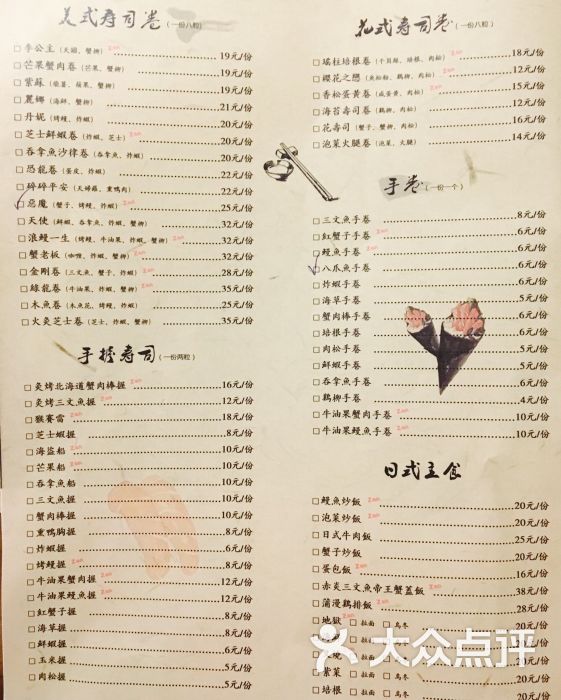 美式寿司卷（一份八粒）
李公主（天婦，蟹柳）19元/份
芒果蟹肉卷（芒果，蟹柳）19元/份
紫蘇（紫薑，蘋果，蟹柳）19元/份
麗娜（海鮮，蟹柳）21元/份
丹妮（烤鰻，炸蝦）20元/份
芝士鮮蝦卷（炸蝦，芝士）20元/份
吞拿魚沙律卷（吞拿魚，炸蝦）20元/份
恐龍卷（蛋皮，炸蝦）22元/份
碎碎平安（天婦羅，熏鴨肉）22元/份
惡魔（蟹子，烤鰻，炸蝦）25元/份
天使（鮮蝦，吞拿魚，炸蝦，蟹柳）32元/份
浪鰻一生（烤鰻，牛油果，炸蝦，蟹柳）32元/份
蟹老板（咖喱，炸蝦，蟹柳）32元/份
金剛卷（三文魚，蟹子，炸蝦）28元/份
綠龍卷（牛油果，炸蝦，蟹柳）35元/份
木魚卷（木魚花，烤鰻，炸蝦）25元/份
火炙芝士卷（芝士，炸蝦，蟹柳）35元/份
手握寿司（一份两粒）
炙烤北海道蟹肉棒握 16元/份
炙烤三文魚握 12元/份
猴賽雷 18元/份
芝士蝦握 8元/份
海盜船 10元/份
芒果船 10元/份
吞拿魚船 10元/份
三文魚握 10元/份
蟹肉棒握 10元/份
熏鴨胸握 8元/份
炸蝦握 6元/份
烤鰻握 8元/份
牛油果蟹肉握 12元/份
牛油果鰻魚握 12元/份
紅蟹子握 8元/份
海草握 8元/份
鮮蝦握 6元/份
玉米握 5元/份
肉松握 5元/份
花式寿司卷（一份八粒）
瑤柱培根卷（干貝絲，培根，肉松）18元/份
櫻花之戀（魚松粉，鷄柳，肉松）12元/份
香松蛋黃卷（咸蛋黃，肉松）15元/份
海苔壽司卷（鷄柳，肉松）12元/份
花壽司（蟹子，蟹柳，肉松）16元/份
泡菜火腿卷（泡菜，火腿）14元/份
手卷（一份一个）
三文魚手卷 8元/份
紅蟹子手卷 6元/份
鰻魚手卷 6元/份
八爪魚手卷 6元/份
炸蝦手卷 6元/份
海草手卷 5元/份
蟹肉棒手卷 6元/份
培根手卷 6元/份
肉松手卷 5元/份
鮮蝦手卷 6元/份
吞拿魚手卷 6元/份
鷄柳手卷 4元/份
牛油果蟹肉手卷 10元/份
牛油果鰻魚手卷 10元/份
日式主食
鰻魚炒飯 20元/份
泡菜炒飯 20元/份
日式牛肉飯 25元/份
蟹子炒飯 20元/份
蛋包飯 16元/份
赤炎三文魚帝王蟹蓋飯 38元/份
蒲漫鷄排飯 28元/份
地獄 拉面 烏冬 20元/份
拉面 烏冬
燒 拉面 烏冬
紫菜 拉面 烏冬 20元/份
培根 拉面 烏冬 20元/份
大众点评